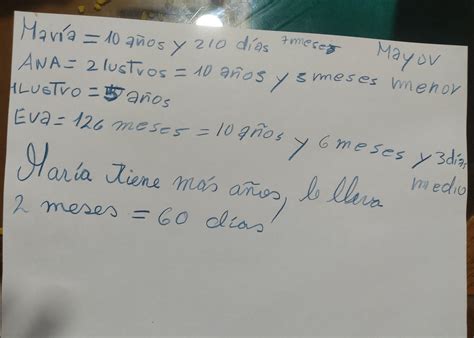 María = 10 años y 210 días 7 meses Mayor
ANA = 2 lustros = 10 años y 3 meses menor
1LUSTRO = 5 años
EVA = 126 meses = 10 años y 6 meses y 3 días medio
María tiene más años, le lleva
2 meses = 60 días